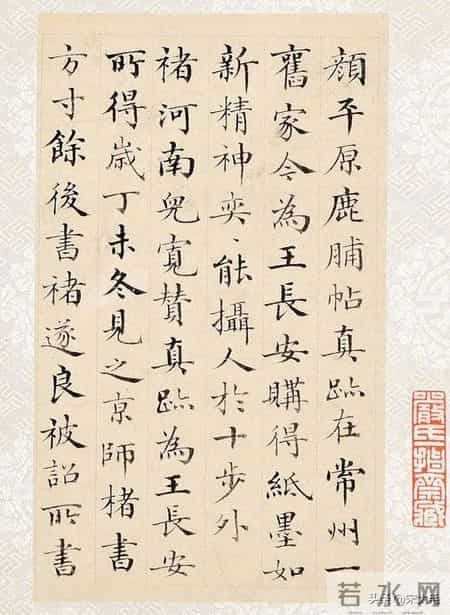 顏平原鹿脯帖真跡在常州一
舊家今為王長安購得紙墨如
新精神奕〻能攝人於十步外
褚河南兒寬贊真跡為王長安
所得歲丁未冬見之京師楮書
方寸餘後書褚遂良被詔所書
若水网